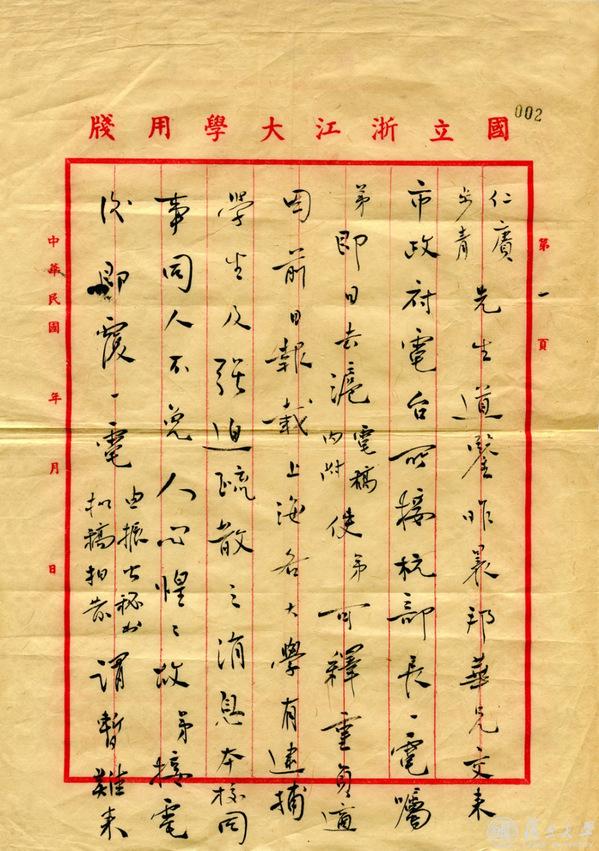 002
國立浙江大學用牋
第一頁
仁廣
步青
先生道鑒昨晨邦華兄交来
市政府電台所接杭部長一電囑
弟即日去滬電稿内附使弟可釋重負適
因前日報載上海各大學有逮捕
學生及強迫疏散之消息本校同
事同人不免人心惶〻故弟接電
後即覆一電由振公秘書扣稿拍發謂暫難来
中華民國 年 月 日